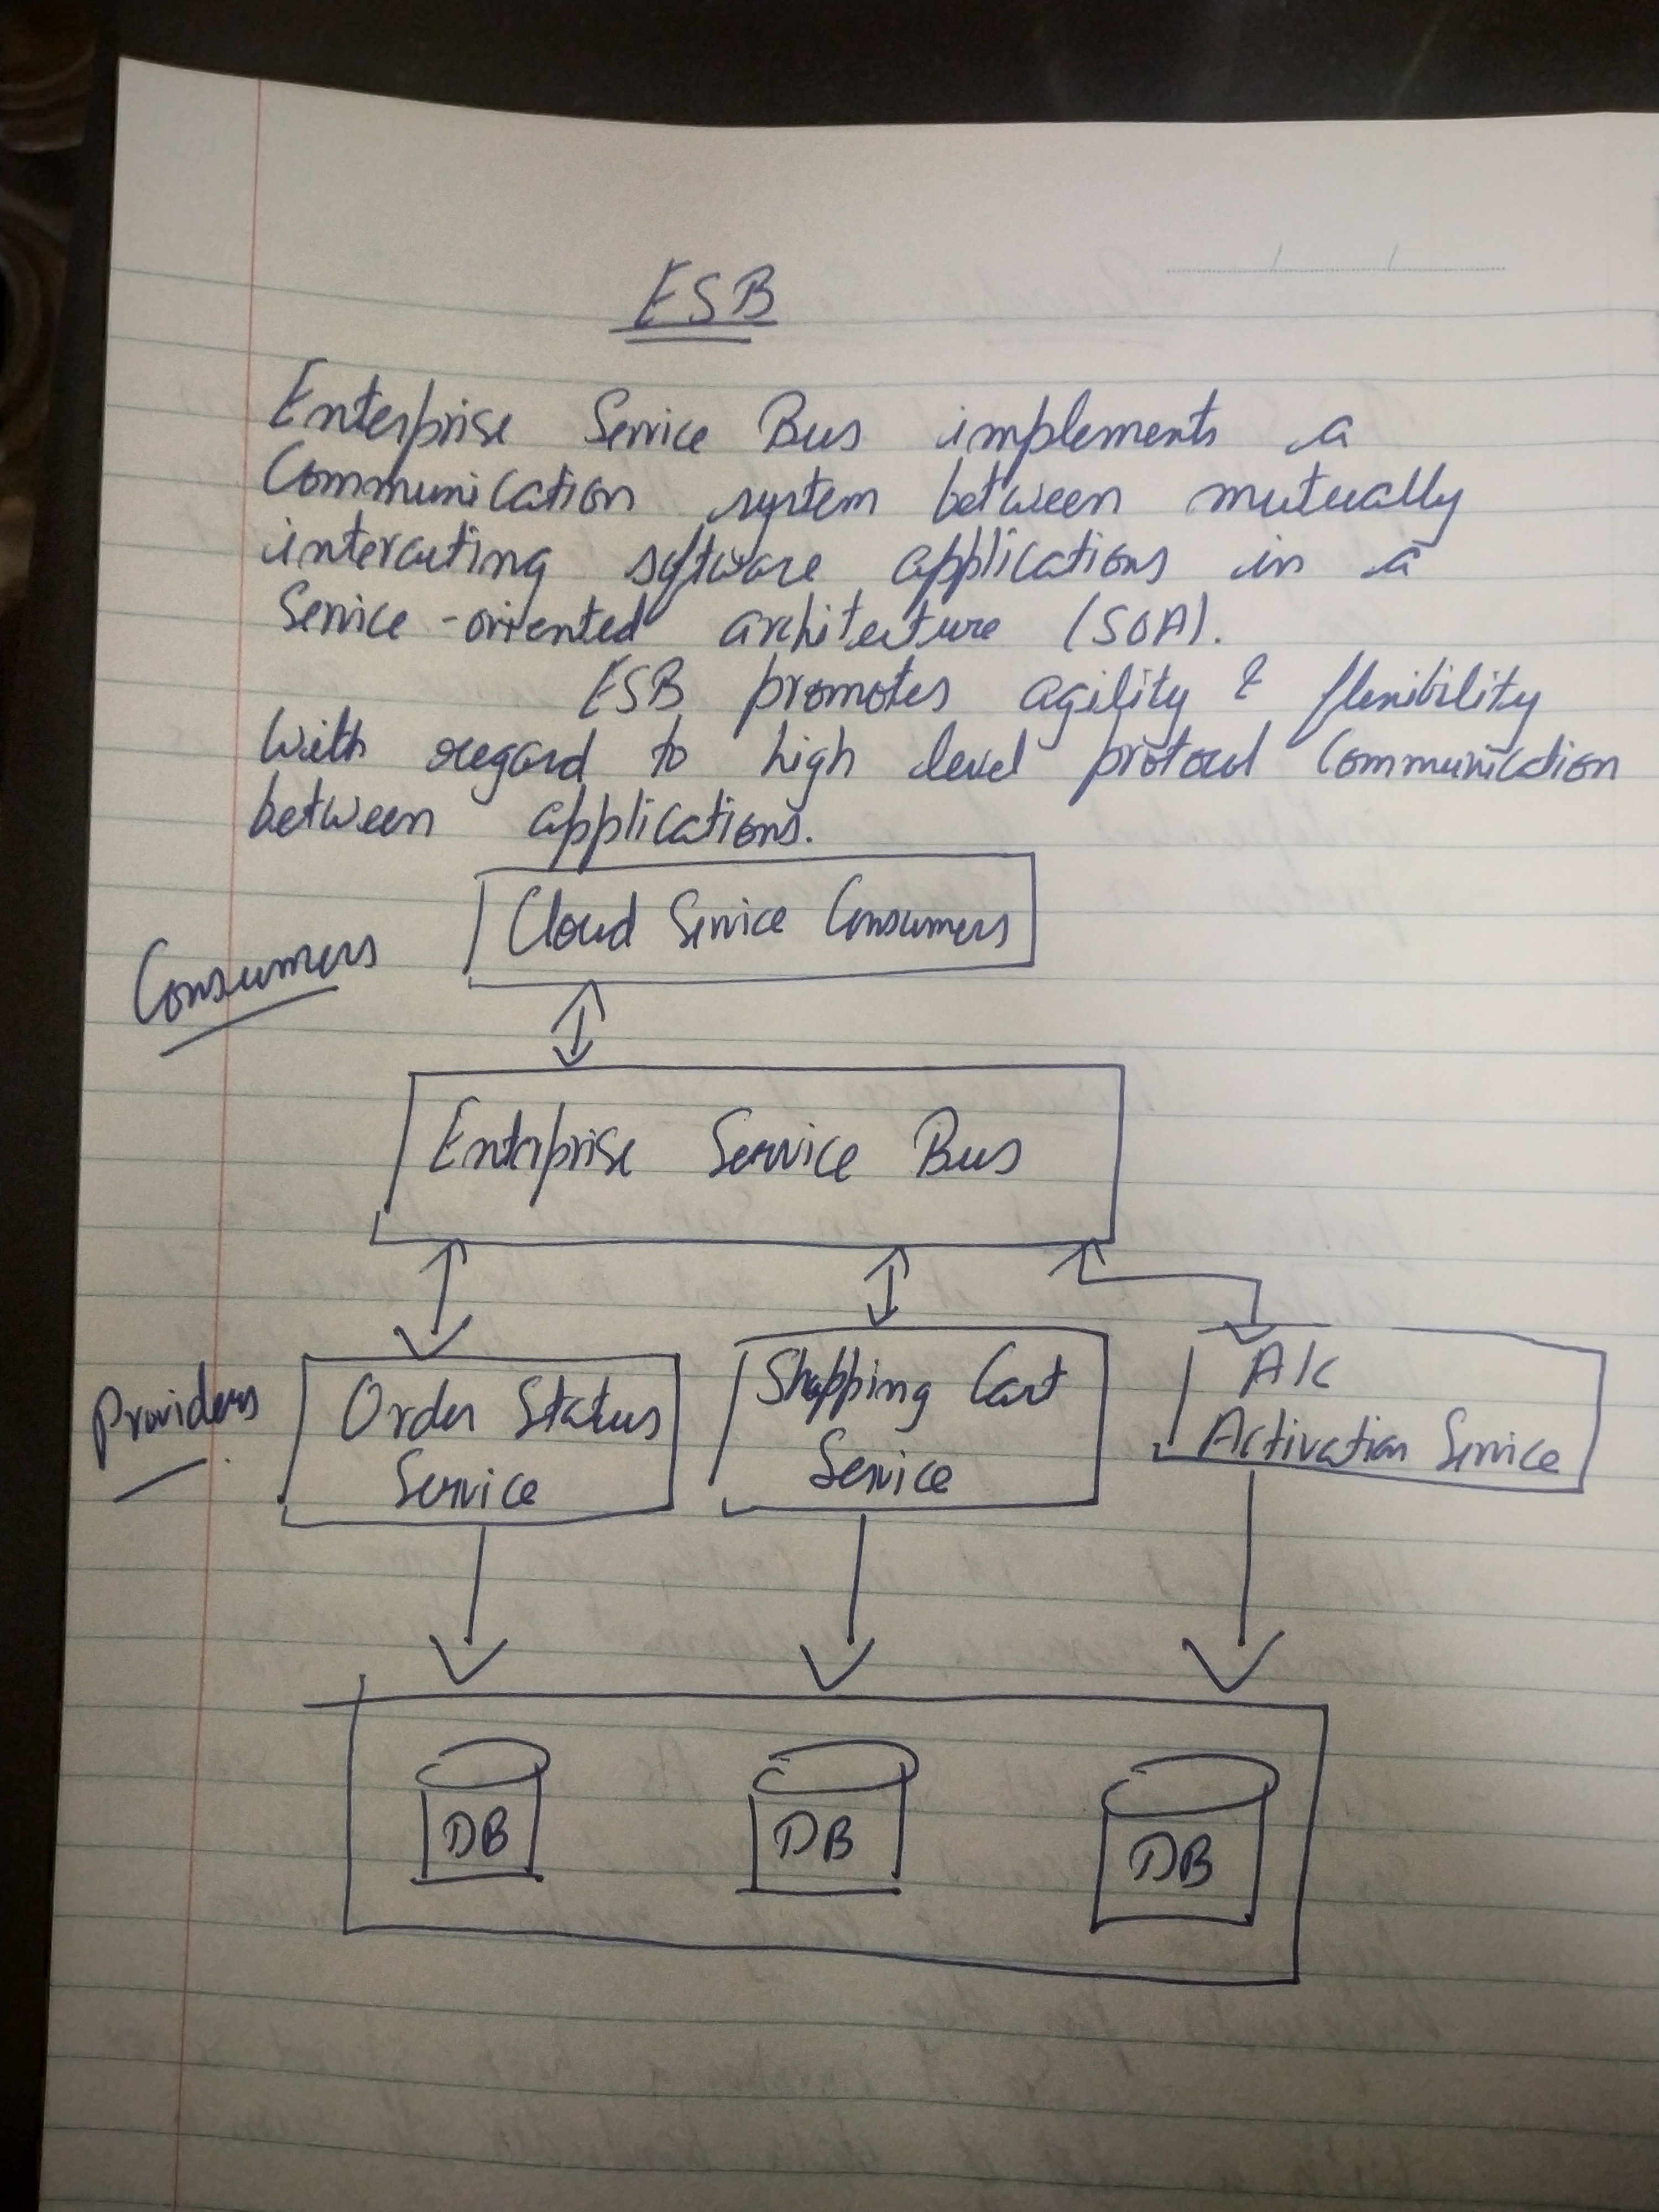 ESB
Enterprise Service Bus implements a
Communication system between mutually
interacting software applications in a
Service-oriented architecture (SOA).
ESB promotes agility & flexibility
With regard to high level protocol Communication
between applications.
Cloud Service Consumers
Consumers
Enterprise Service Bus
Providers
Order Status
Service
Shopping Cart
Service
A/c
Activation Service
DB
DB
DB